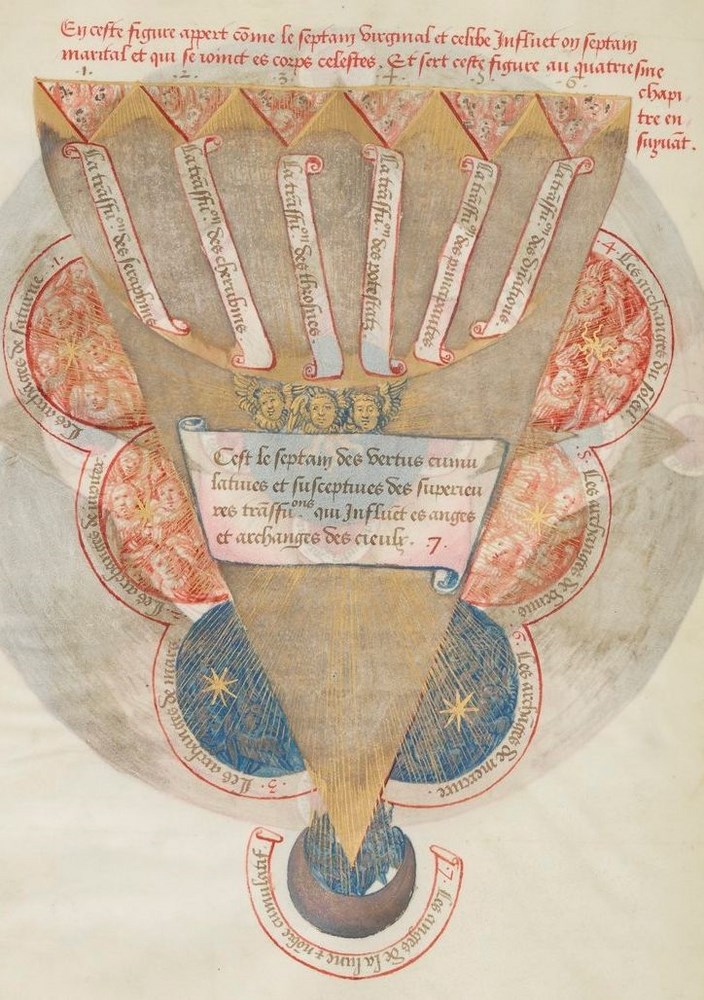 En ceste figure appert cōme le septain virginal et celibe Influet on septain
marital et qui se ioinct es corps celestes. Et sert ceste figure au quatriesme
chapi
tre en
suyuāt.
.1. .2. .3. .4. .5. .6.
La trāsfu.on des seraphins
La trāsfu.on des cherubins.
La trāsfu.on des throsnes
La trāsfu.on des potestatz
La trāsfu.on des principaultez
La trāsfu.on des
Cest le septain des vertus cumu
latiues et susceptiues des superieu
res trāsfu.ons qui Influēt es anges
et archanges des cieulx. .7.
Les archāges de saturne .1.
Les archāges de iupiter. .2.
Les archāges de mars .3.
.4. Les archanges du soleil.
.5. Les archāges de venus
.6. Les archāges de mercure.
.7. Les anges de la lune + nostre